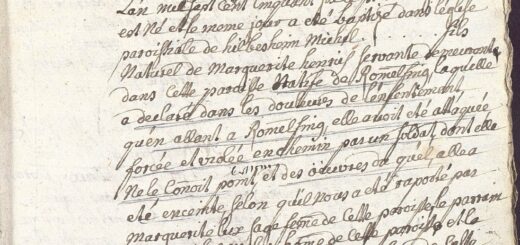 Lan mil sept cent cinquant
est Né et le meme jour a eté baptizé dans l'eglise
paroissiale de hilbesheim Michel fils
Naturel de Marguerite henris servante demeurante
dans cette paroisse Native de Romelfing laquelle
a declaré dans les douleurs de l'enfentement
qu'en allant a Romelfing elle avoit eté attaquée
forcée et violée en chemin par un soldat dont elle
Ne le Conoit point et des oüuvres du quel elle a
eté enceinte selon qu'il nous a eté raporté par
Marguerite lux sage feme de cette paroisse le parrain
de cette paroisse et la